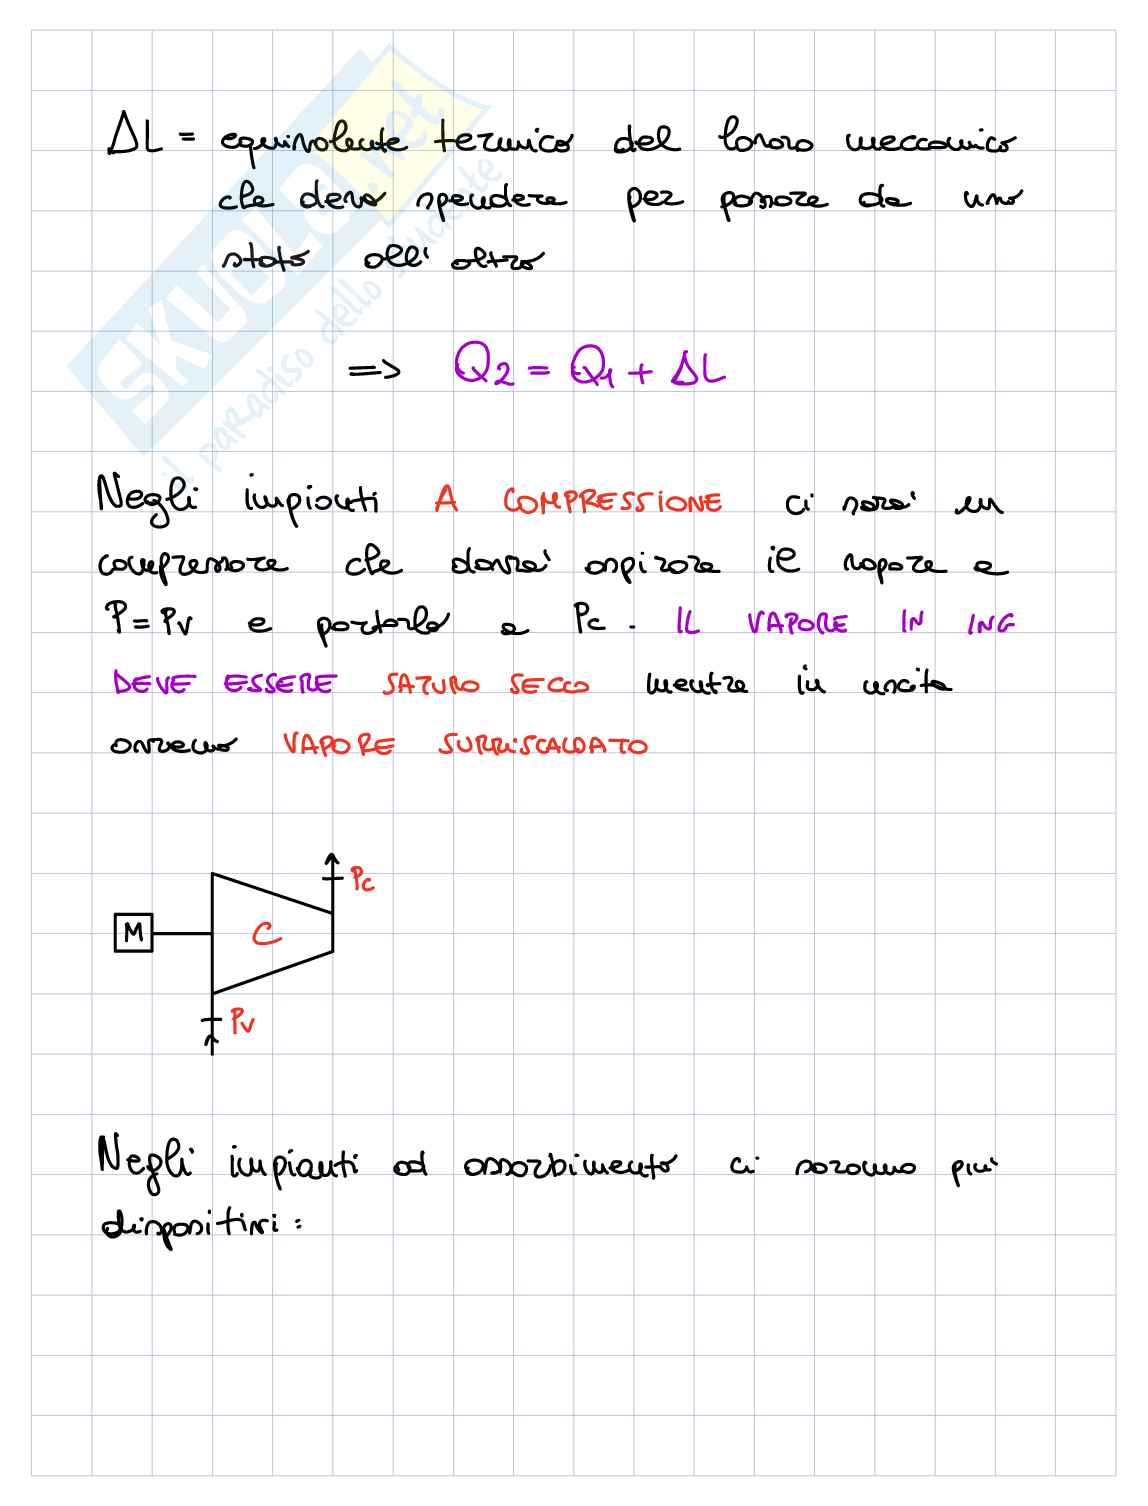 ΔL = equivalente termico del lavoro meccanico
che devo spendere per passare da uno
stato all'altro
=> Q2 = Q1 + ΔL
Negli impianti A COMPRESSIONE ci sarà un
compressore che dovrà aspirare il vapore a
P = Pv e portarlo a Pc. IL VAPORE IN ING
DEVE ESSERE SATURO SECCO mentre in uscita
avremo VAPORE SURRISCALDATO
Pc
M
C
Pv
Negli impianti ad assorbimento ci saranno più
dispositivi:
SKUOLA.net
il paradiso dello studente